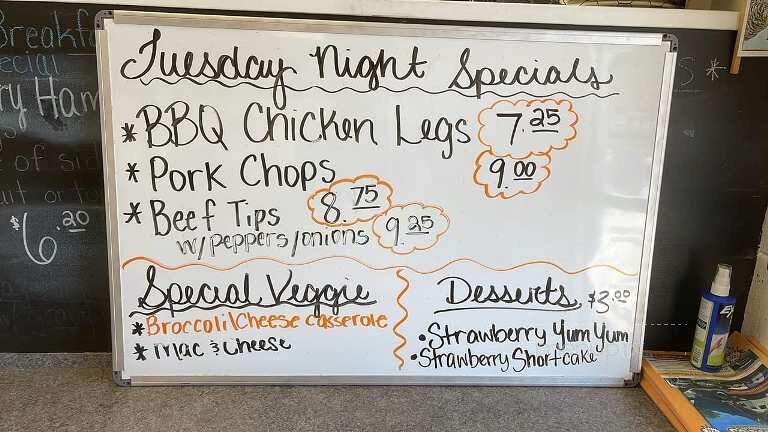 Tuesday Night Specials
* BBQ Chicken Legs 7.25
* Pork Chops 9.00
* Beef Tips 8.75
w/peppers/onions 9.25
Special Veggie
* Broccoli/Cheese casserole
* Mac & Cheese
Desserts $3.00
• Strawberry Yum Yum
• Strawberry Shortcake
Breakf
ecial
ry Ham
of sid
uit or
$6.20